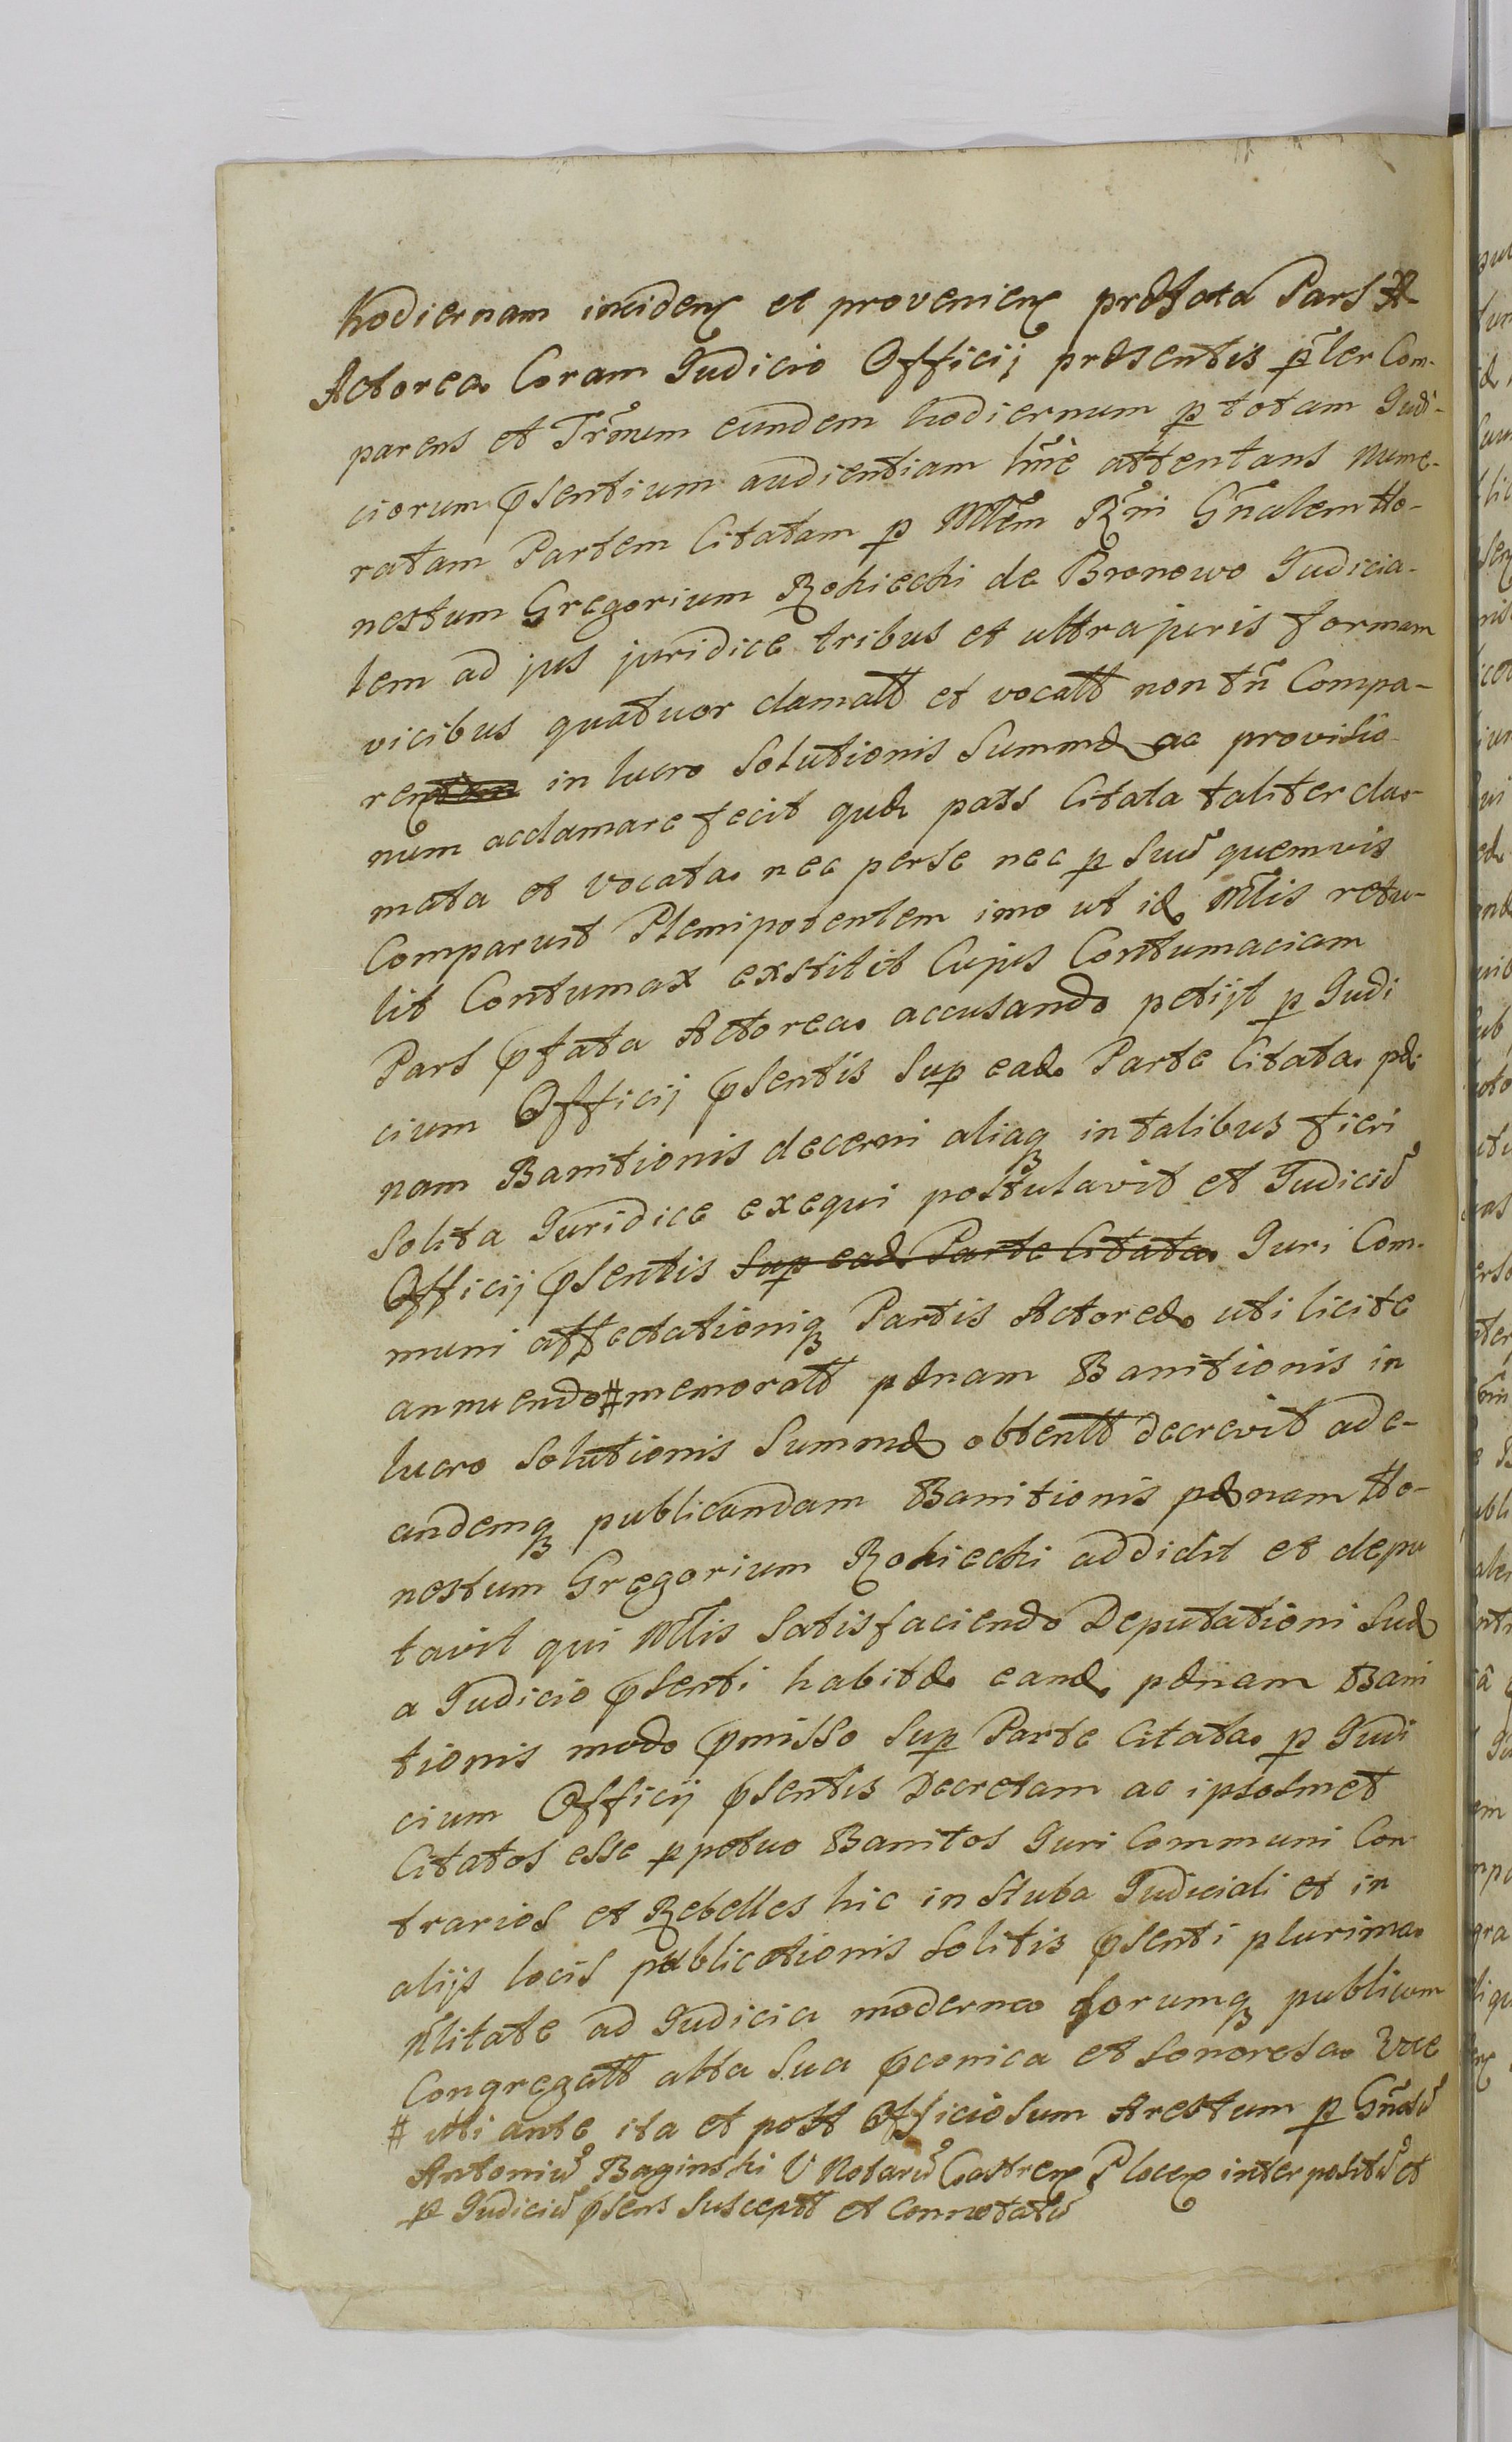 hodiernam inciden~ et provenien~ præfata Pars A
Actorea Coram Judicio Officij præsentis p~ler Com-
parens et Tr~num eundem hodiernum p totam Judi-
ciorum p~sentium audientiam lt~me attentans Nume-
ratam Partem Citatam p Mtlem R~ni G~nalem Ho-
nestum Gregorium Rokiecki de Bronowo Judicia-
lem ad jus juridice tribus et ultra juris formam
vicibus quatuor clamatt et vocatt non tn~ Compa-
ren~ in lucro Solutionis Summæ ac provisio
num acclamare fecit quæ pars Citata taliter cla-
mata et vocata nec perse nec p suu~ quemvis
Comparuit Plenipotentem imo ut id Mtlis retu-
lit Contumax exstitit Cujus Contumaciam
Pars p~fata Actorea accusando petijt p Judi
cium Officij p~sentis Sup ead Parte Citata pæ
nam Banitionis decerni aliaq in talibus fieri
Solita Juridice exequi postulavit et Judiciu~
Officij p~sentis Sup ead Parte Citata Juri Com-
muni affectationiq Partis Actoreæ uti licite
annuendo # memoratt pænam Banitionis in
lucro Solutionis Summæ obtentt decrevit ad e-
andemq publicandam Banitionis pænam Ho-
nestum Gregorium Rokiecki addidit et depu
tavit qui Mtlis Satisfaciendo Deputationi Suæ
a Judicio p~senti habitæ eand pænam Bani
tionis modo p~misso Sup Parte Citata p Judi
cium Officij p~sentis Decretam ac ipsosmet
Citatos esse ppetuo Banitos Juri Communi Con
trarios et Rebelles hic in Stuba Judiciali et in
alijs locis publicationis Solitis p~senti plurima
N~litate ad Judicia moderna forumq publicum
Congregatt alta Sua p~conica et Sonorosa Voce
# uti ante ita et post Officiosum Arestum p G~nosu~
Antoniu~ Baginski V Notariu~ Castren~ Plocen~ interpositu~ et
p Judiciu~ p~sens Susceptt et Connotatu~